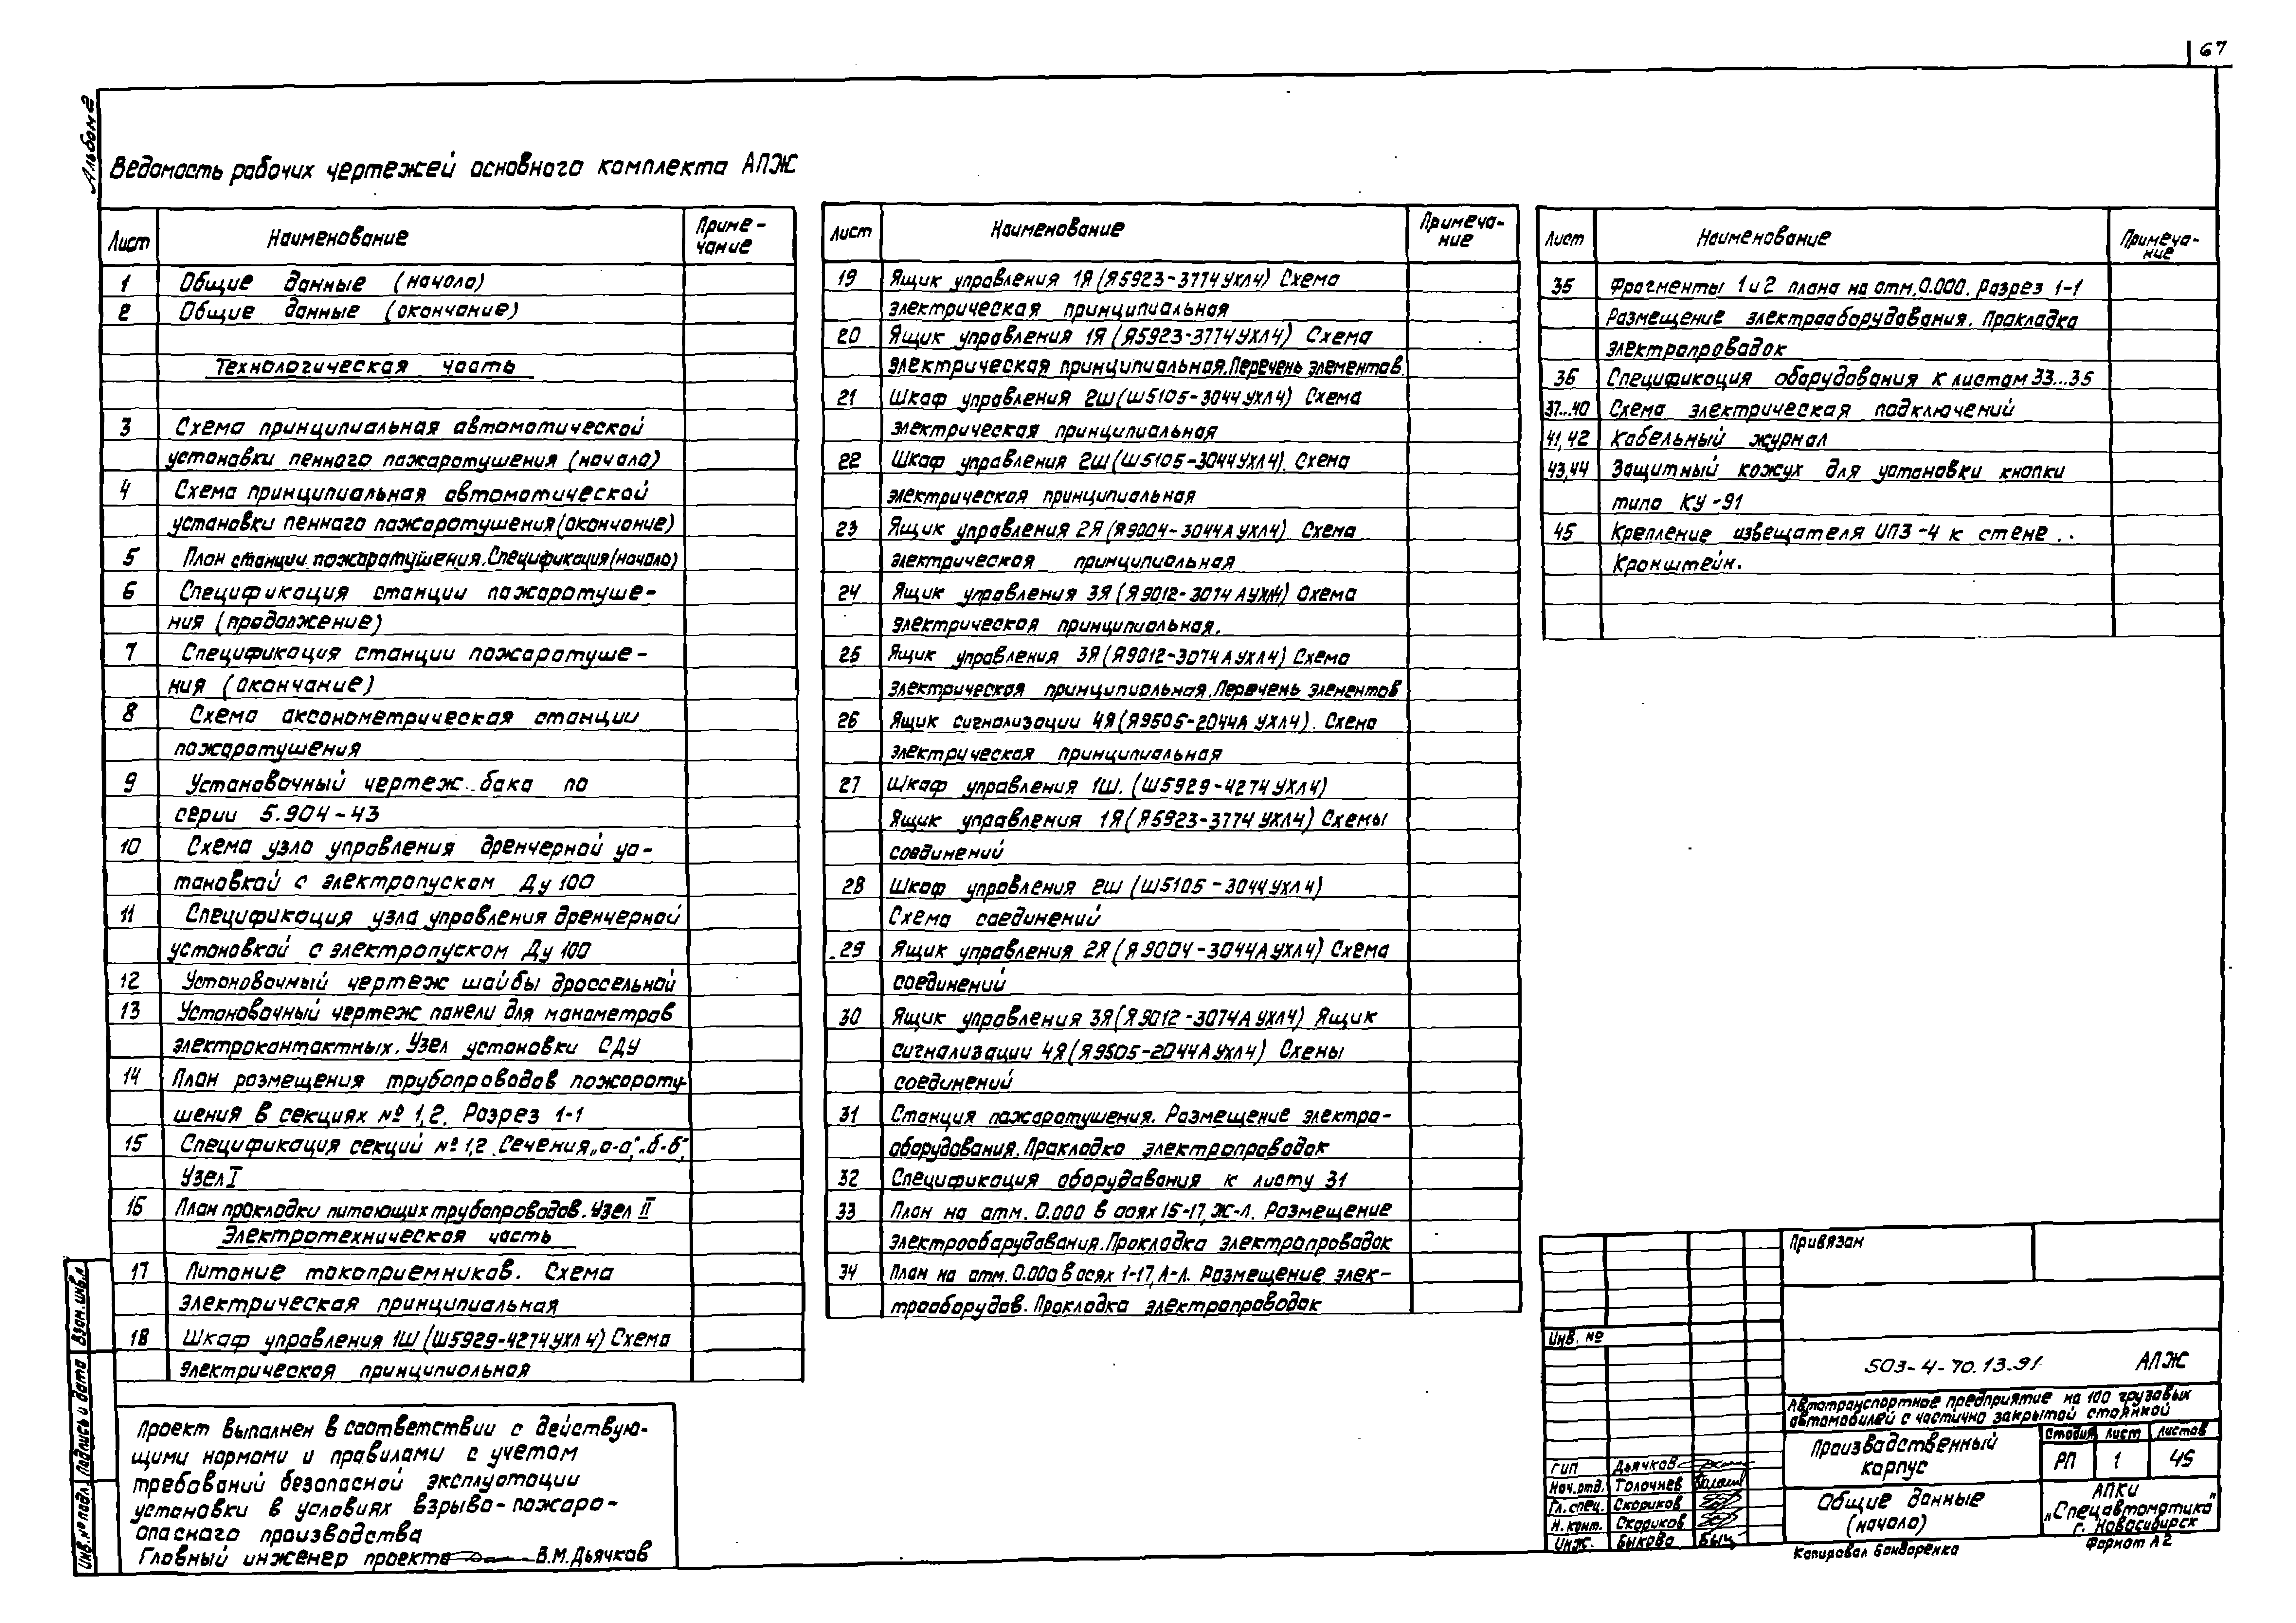 67
Альбом 2
Ведомость рабочих чертежей основного комплекта АПЖ
Лист Наименование Приме-
чание
1 Общие данные (начало)
2 Общие данные (окончание)
Технологическая часть
3 Схема принципиальная автоматической
установки пенного пожаротушения (начало)
4 Схема принципиальная автоматической
установки пенного пожаротушения (окончание)
5 План станции пожаротушения. Спецификация (начало)
6 Спецификация станции пожаротуше-
ния (продолжение)
7 Спецификация станции пожаротуше-
ния (окончание)
8 Схема аксонометрическая станции
пожаротушения
9 Установочный чертеж бака по
серии 5.904-43
10 Схема узла управления дренчерной ус-
тановкой с электропуском Ду 100
11 Спецификация узла управления дренчерной
установкой с электропуском Ду 100
12 Установочный чертеж шайбы дроссельной
13 Установочный чертеж панели для манометров
электроконтактных. Узел установки СДУ
14 План размещения трубопроводов пожароту-
шения в секциях № 1,2. Разрез 1-1
15 Спецификация секций № 1,2. Сечения „а-а", „б-б",
Узел I
16 План прокладки питающих трубопроводов. Узел II
Электротехническая часть
17 Питание токоприемников. Схема
электрическая принципиальная
18 Шкаф управления 1Ш (Ш5929-4274 УХЛ 4) Схема
электрическая принципиальная
Лист Наименование Примеча-
ние
19 Ящик управления 1Я (Я5923-3774 УХЛ4) Схема
электрическая принципиальная
20 Ящик управления 1Я (Я5923-3774 УХЛ4) Схема
электрическая принципиальная. Перечень элементов.
21 Шкаф управления 2Ш (Ш5105-3044 УХЛ4) Схема
электрическая принципиальная
22 Шкаф управления 2Ш (Ш5105-3044 УХЛ4). Схема
электрическая принципиальная
23 Ящик управления 2Я (Я9004-3044А УХЛ4) Схема
электрическая принципиальная
24 Ящик управления 3Я (Я9012-3074 А УХЛ4) Схема
электрическая принципиальная.
25 Ящик управления 3Я (Я9012-3074 А УХЛ4) Схема
электрическая принципиальная. Перечень элементов
26 Ящик сигнализации 4Я (Я9505-2044А УХЛ4). Схема
электрическая принципиальная
27 Шкаф управления 1Ш. (Ш5929-4274 УХЛ4)
Ящик управления 1Я (Я5923-3774 УХЛ4) Схемы
соединений
28 Шкаф управления 2Ш (Ш5105-3044 УХЛ4)
Схема соединений
29 Ящик управления 2Я (Я9004-3044А УХЛ4) Схема
соединений
30 Ящик управления 3Я (Я9012-3074А УХЛ4) Ящик
сигнализации 4Я (Я9505-2044А УХЛ4) Схемы
соединений
31 Станция пожаротушения. Размещение электро-
оборудования. Прокладка электропроводок
32 Спецификация оборудования к листу 31
33 План на отм. 0.000 в осях 15-17, Ж-Л. Размещение
электрооборудования. Прокладка электропроводок
34 План на отм. 0.000 в осях 1-17, А-Л. Размещение элек-
трооборудов. Прокладка электропроводок
Лист Наименование Примеча-
ние
35 Фрагменты 1 и 2 плана на отм. 0.000. Разрез 1-1
Размещение электрооборудования. Прокладка
электропроводок
36 Спецификация оборудования к листам 33...35
37...40 Схема электрическая подключений
41,42 Кабельный журнал
43,44 Защитный кожух для установки кнопки
типа КУ-91
45 Крепление извещателя ИПЗ-4 к стене..
Кронштейн.
Проект выполнен в соответствии с действую-
щими нормами и правилами с учетом
требований безопасной эксплуатации
установки в условиях взрыво-пожаро-
опасного производства
Главный инженер проекта В.М. Дьячков
Взам. инв.№
Подпись и дата
Инв. № подл.
Привязан
Инв. №
503-4-70.13.91 АПЖ
Автотранспортное предприятие на 100 грузовых
автомобилей с частично закрытой стоянкой
Производственный
корпус
Стадия Лист Листов
РП 1 45
ГИП Дьячков
Нач.отд. Толочнев
Гл. спец. Скориков
Н. конт. Скориков
Инж. Быкова Быч
Общие данные
(начало)
АПКИ
„Спецавтоматика"
г. Новосибирск
Копировал Бондаренко Формат А2